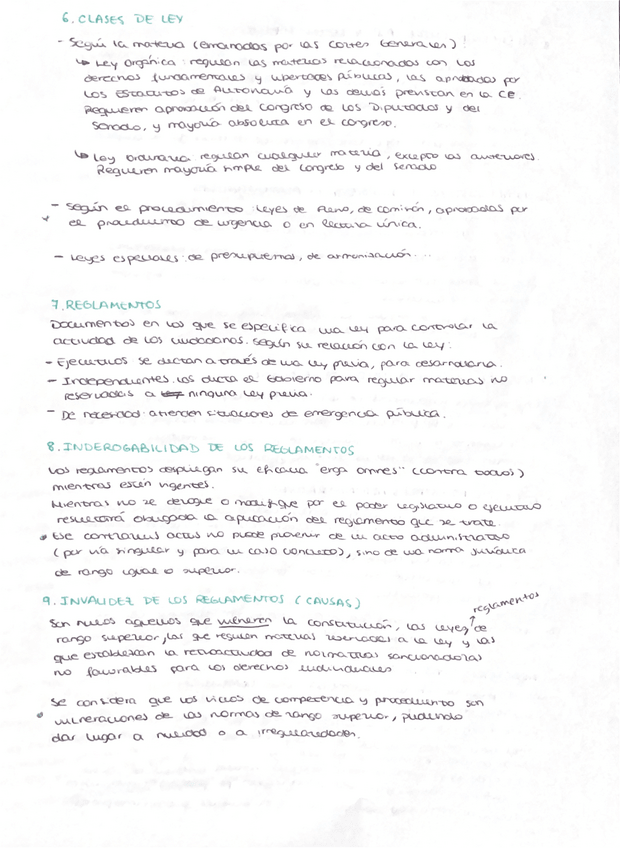 6. CLASES DE LEY
- Según la materia (emanadas por las Cortes Generales):
↳ Ley Orgánica: regulan las materias relacionadas con los
derechos fundamentales y libertades públicas, las aprobadas por
los Estatutos de Autonomía y las demás previstan en la CE.
Requieren aprobación del Congreso de los Diputados y del
Senado, y mayoría absoluta en el congreso.
↳ Ley ordinaria regulan cualquier materia, excepto las anteriores.
Requieren mayoría simple del Congreso y del Senado
- Según el procedimiento: Leyes de Pleno, de comisión, aprobadas por
el procedimiento de urgencia o en lectura única.
- Leyes especiales: de presupuestos, de armonización...
7. REGLAMENTOS
Documentos en los que se especifica una ley para controlar la
actividad de los ciudadanos. Según su relación con la ley:
- Ejecutivos se dictan a través de una ley previa, para desarrollarla.
- Independientes. Los dicta el Gobierno para regular materias no
reservadas a ninguna ley previa.
- De necesidad: atienden situaciones de emergencia pública.
8. INDEROGABILIDAD DE LOS REGLAMENTOS
Los reglamentos despliegan su eficacia "erga omnes" (contra todos)
mientras estén vigentes.
Mientras no se derogue o modifique por el poder legislativo o ejecutivo
resultará obligada la aplicación del reglamento que se trate.
Ese contrarius actus no puede provenir de un acto administrativo
(por vía singular y para un caso concreto), sino de una norma jurídica
de rango igual o superior.
9. INVALIDEZ DE LOS REGLAMENTOS (CAUSAS)
reglamentos
Son nulos aquellos que vulneren la constitución, las leyes de
rango superior, las que regulen materias reservadas a la ley y las
que establezcan la retroactividad de normativas sancionadoras
no favorables para los derechos individuales
Se considera que los vicios de competencia y procedimiento son
vulneraciones de las normas de rango superior, pudiendo
dar lugar a nulidad o a irregularidades.